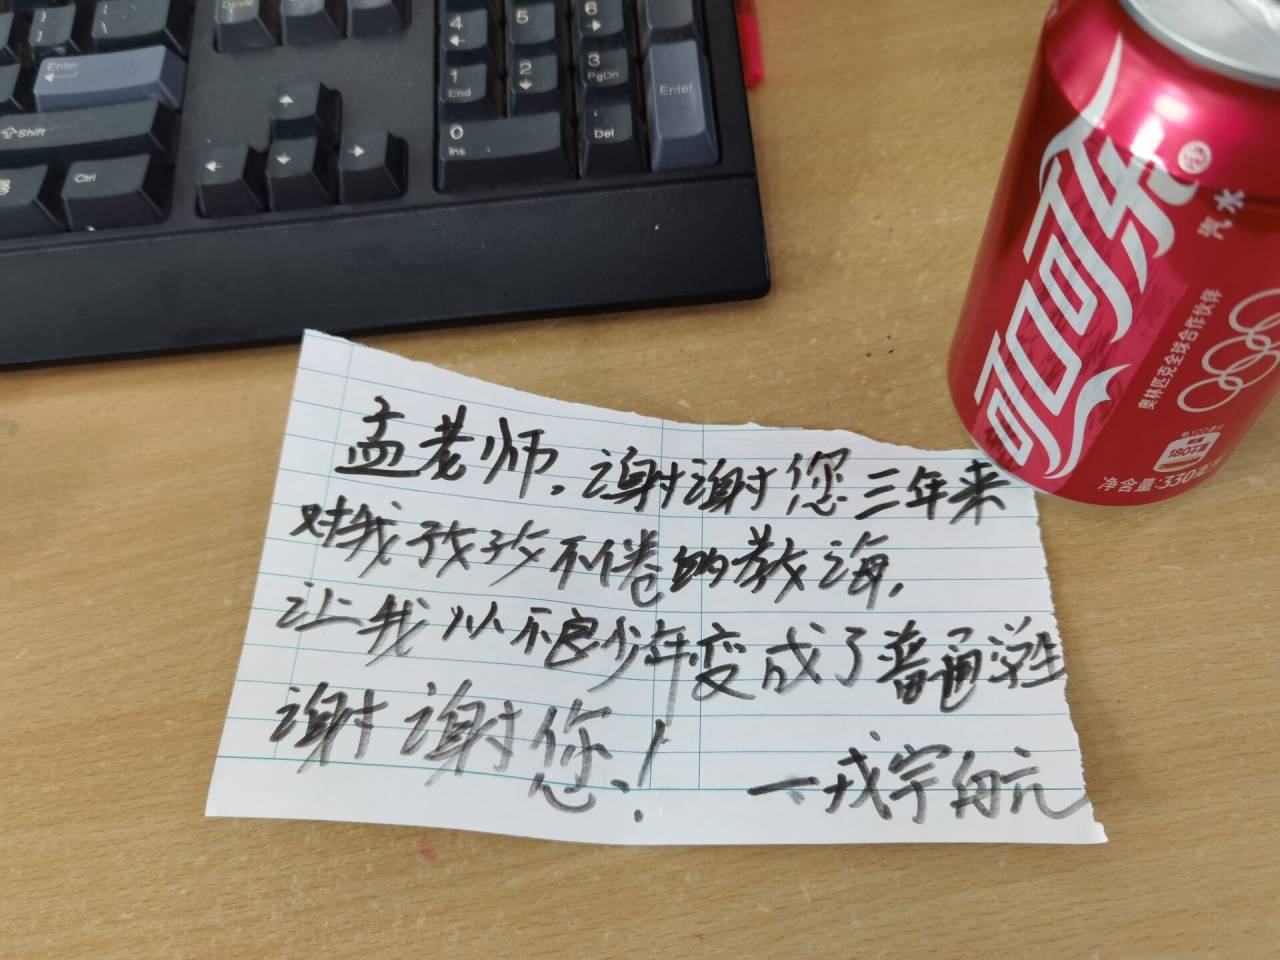 Enter
Shift
Ctrl
4
5
6
1
End
2
3
PgDn
Enter
0
Ins
Del
可口可乐®
汽水
奥林匹克全球合作伙伴
180千焦
净含量:330毫升
孟老师,谢谢您三年来
对我孜孜不倦的教诲,
让我从不良少年变成了普通学生
谢谢您!
—戎宇航